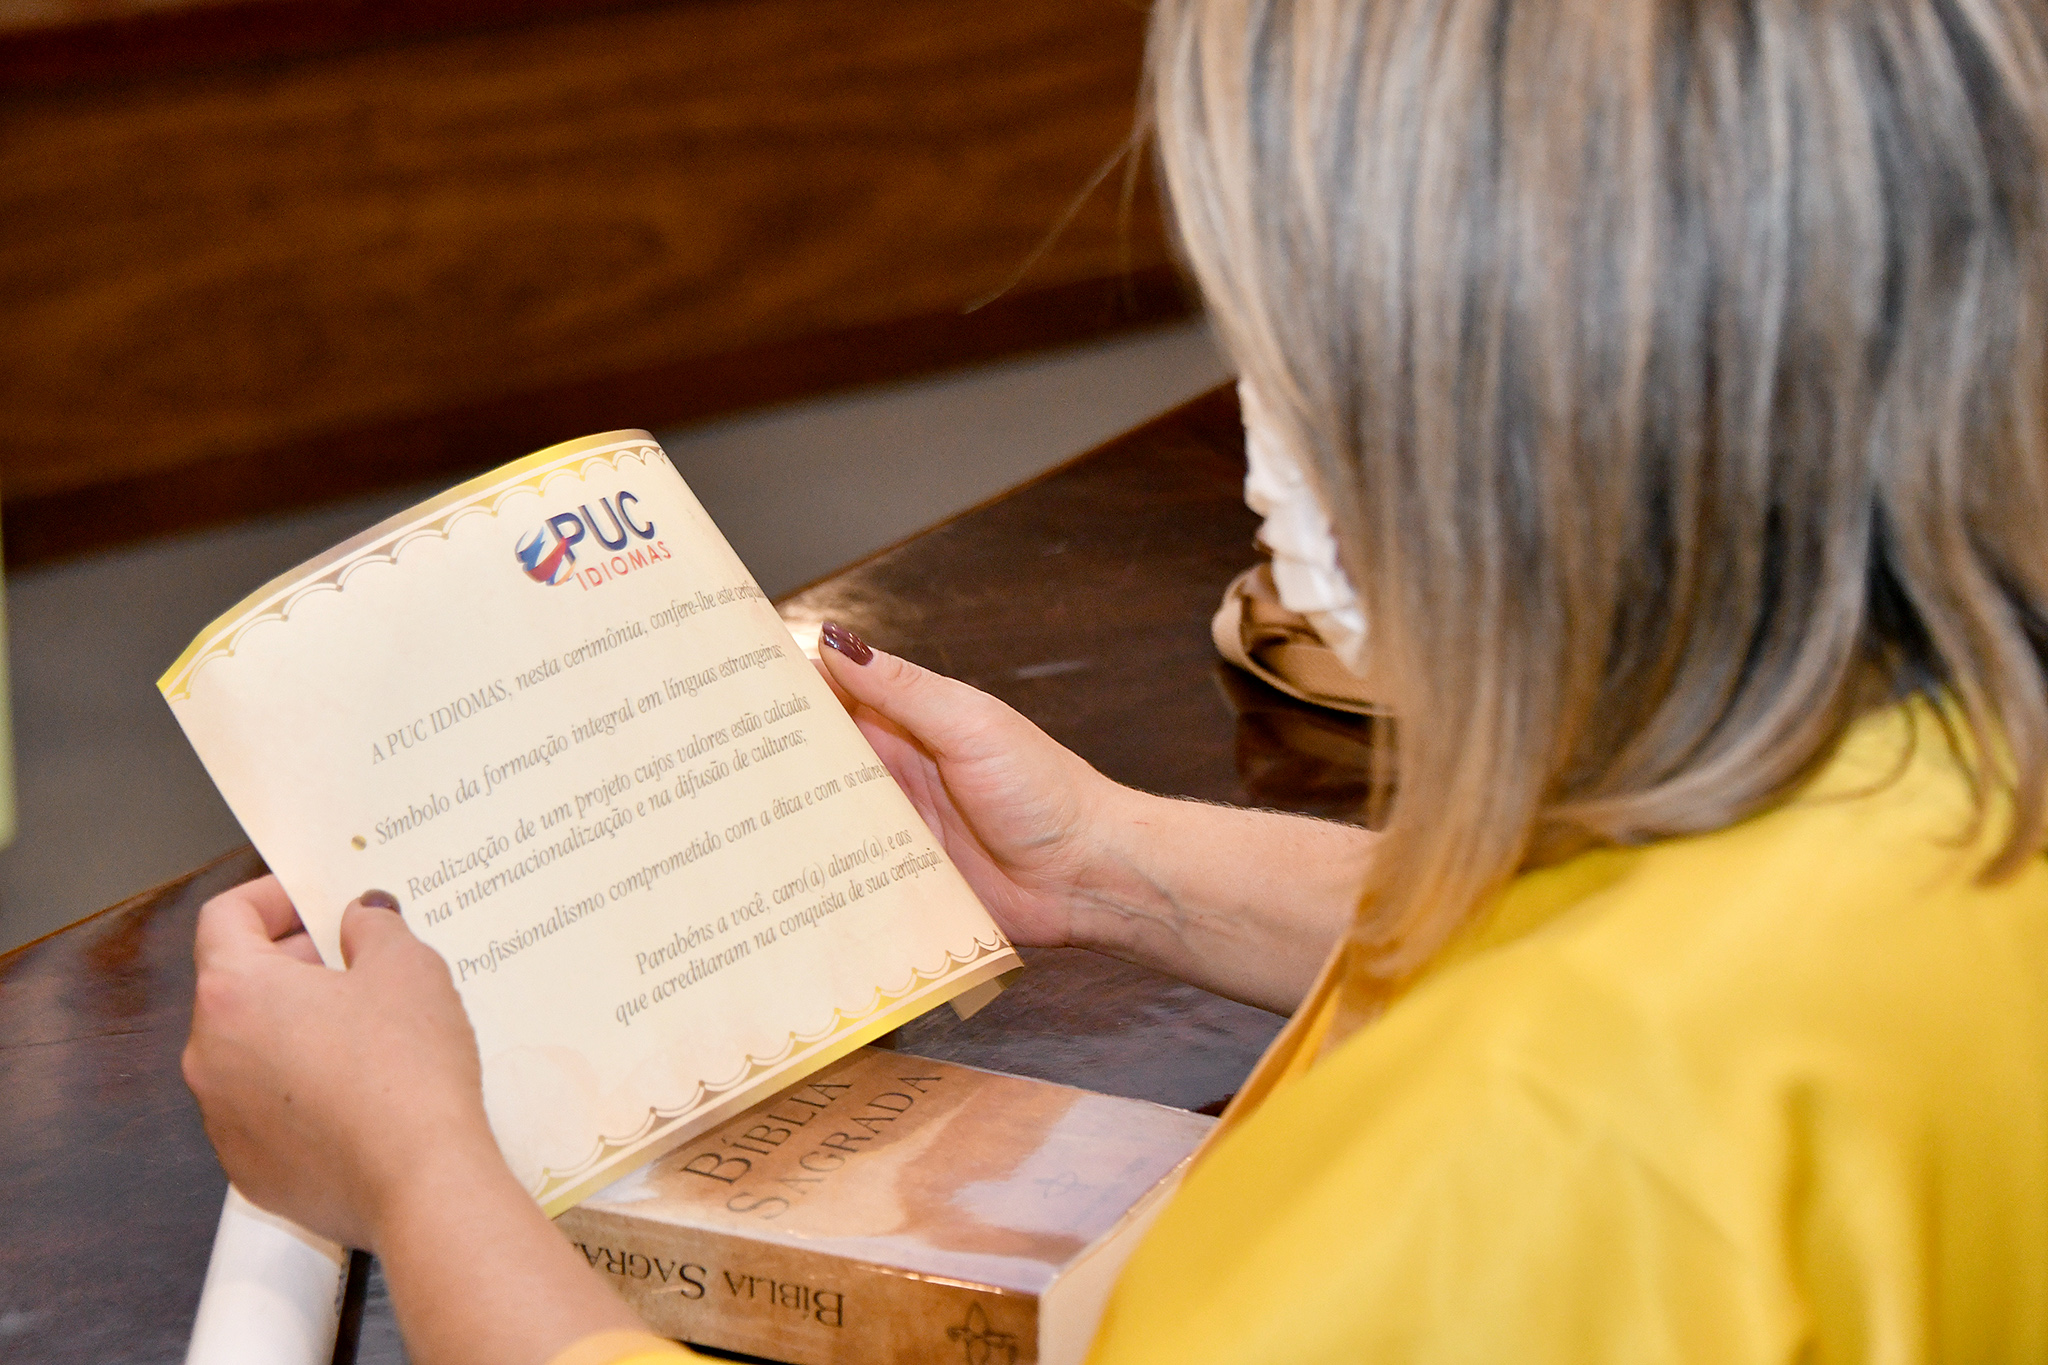 PUC
IDIOMAS
A PUC IDIOMAS, nesta cerimônia, confere-lhe este
Símbolo da formação integral em línguas estrangeiras;
Realização de um projeto cujos valores estão calcados
na internacionalização e na difusão de culturas;
Profissionalismo comprometido com a ética e com os valores
Parabéns a você, caro(a) aluno(a), e aos
que acreditaram na conquista de sua certificação.
BÍBLIA
SAGRADA
BÍBLIA SAGRA